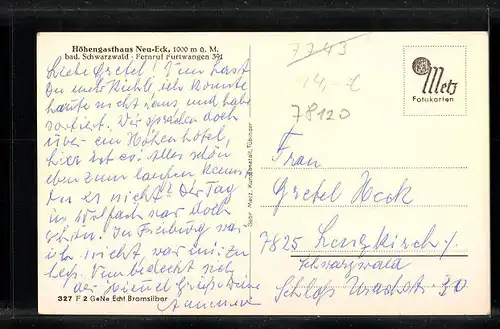 Höhengasthaus Neu-Eck, 1000 m ü. M.
bad. Schwarzwald · Fernruf Furtwangen 391
Liebe Gretel! Nun hast
Du mehr Kühle, ich konnte
heute nicht raus und habe
sortiert. Wir sprachen doch
über ein Höhenhotel,
hier ist es. Alles schön
eben zum laufen. Kennst
Du es nicht? Der Tag
in Wolfach war doch
schön. In Freiburg war
ich nicht war mir zu
heiß. Nun bedeckt sich
der Himmel Grüße Deine
327 F 2 GeNe Echt Bromsilber
Gebr. Metz, Kunstanstalt, Tübingen
7743
14,-
78120
Metz
Fotokarten
Frau
Gretel Heck
7825 Lenzkirch /
Schwarzwald
Schloß Urachstr. 30